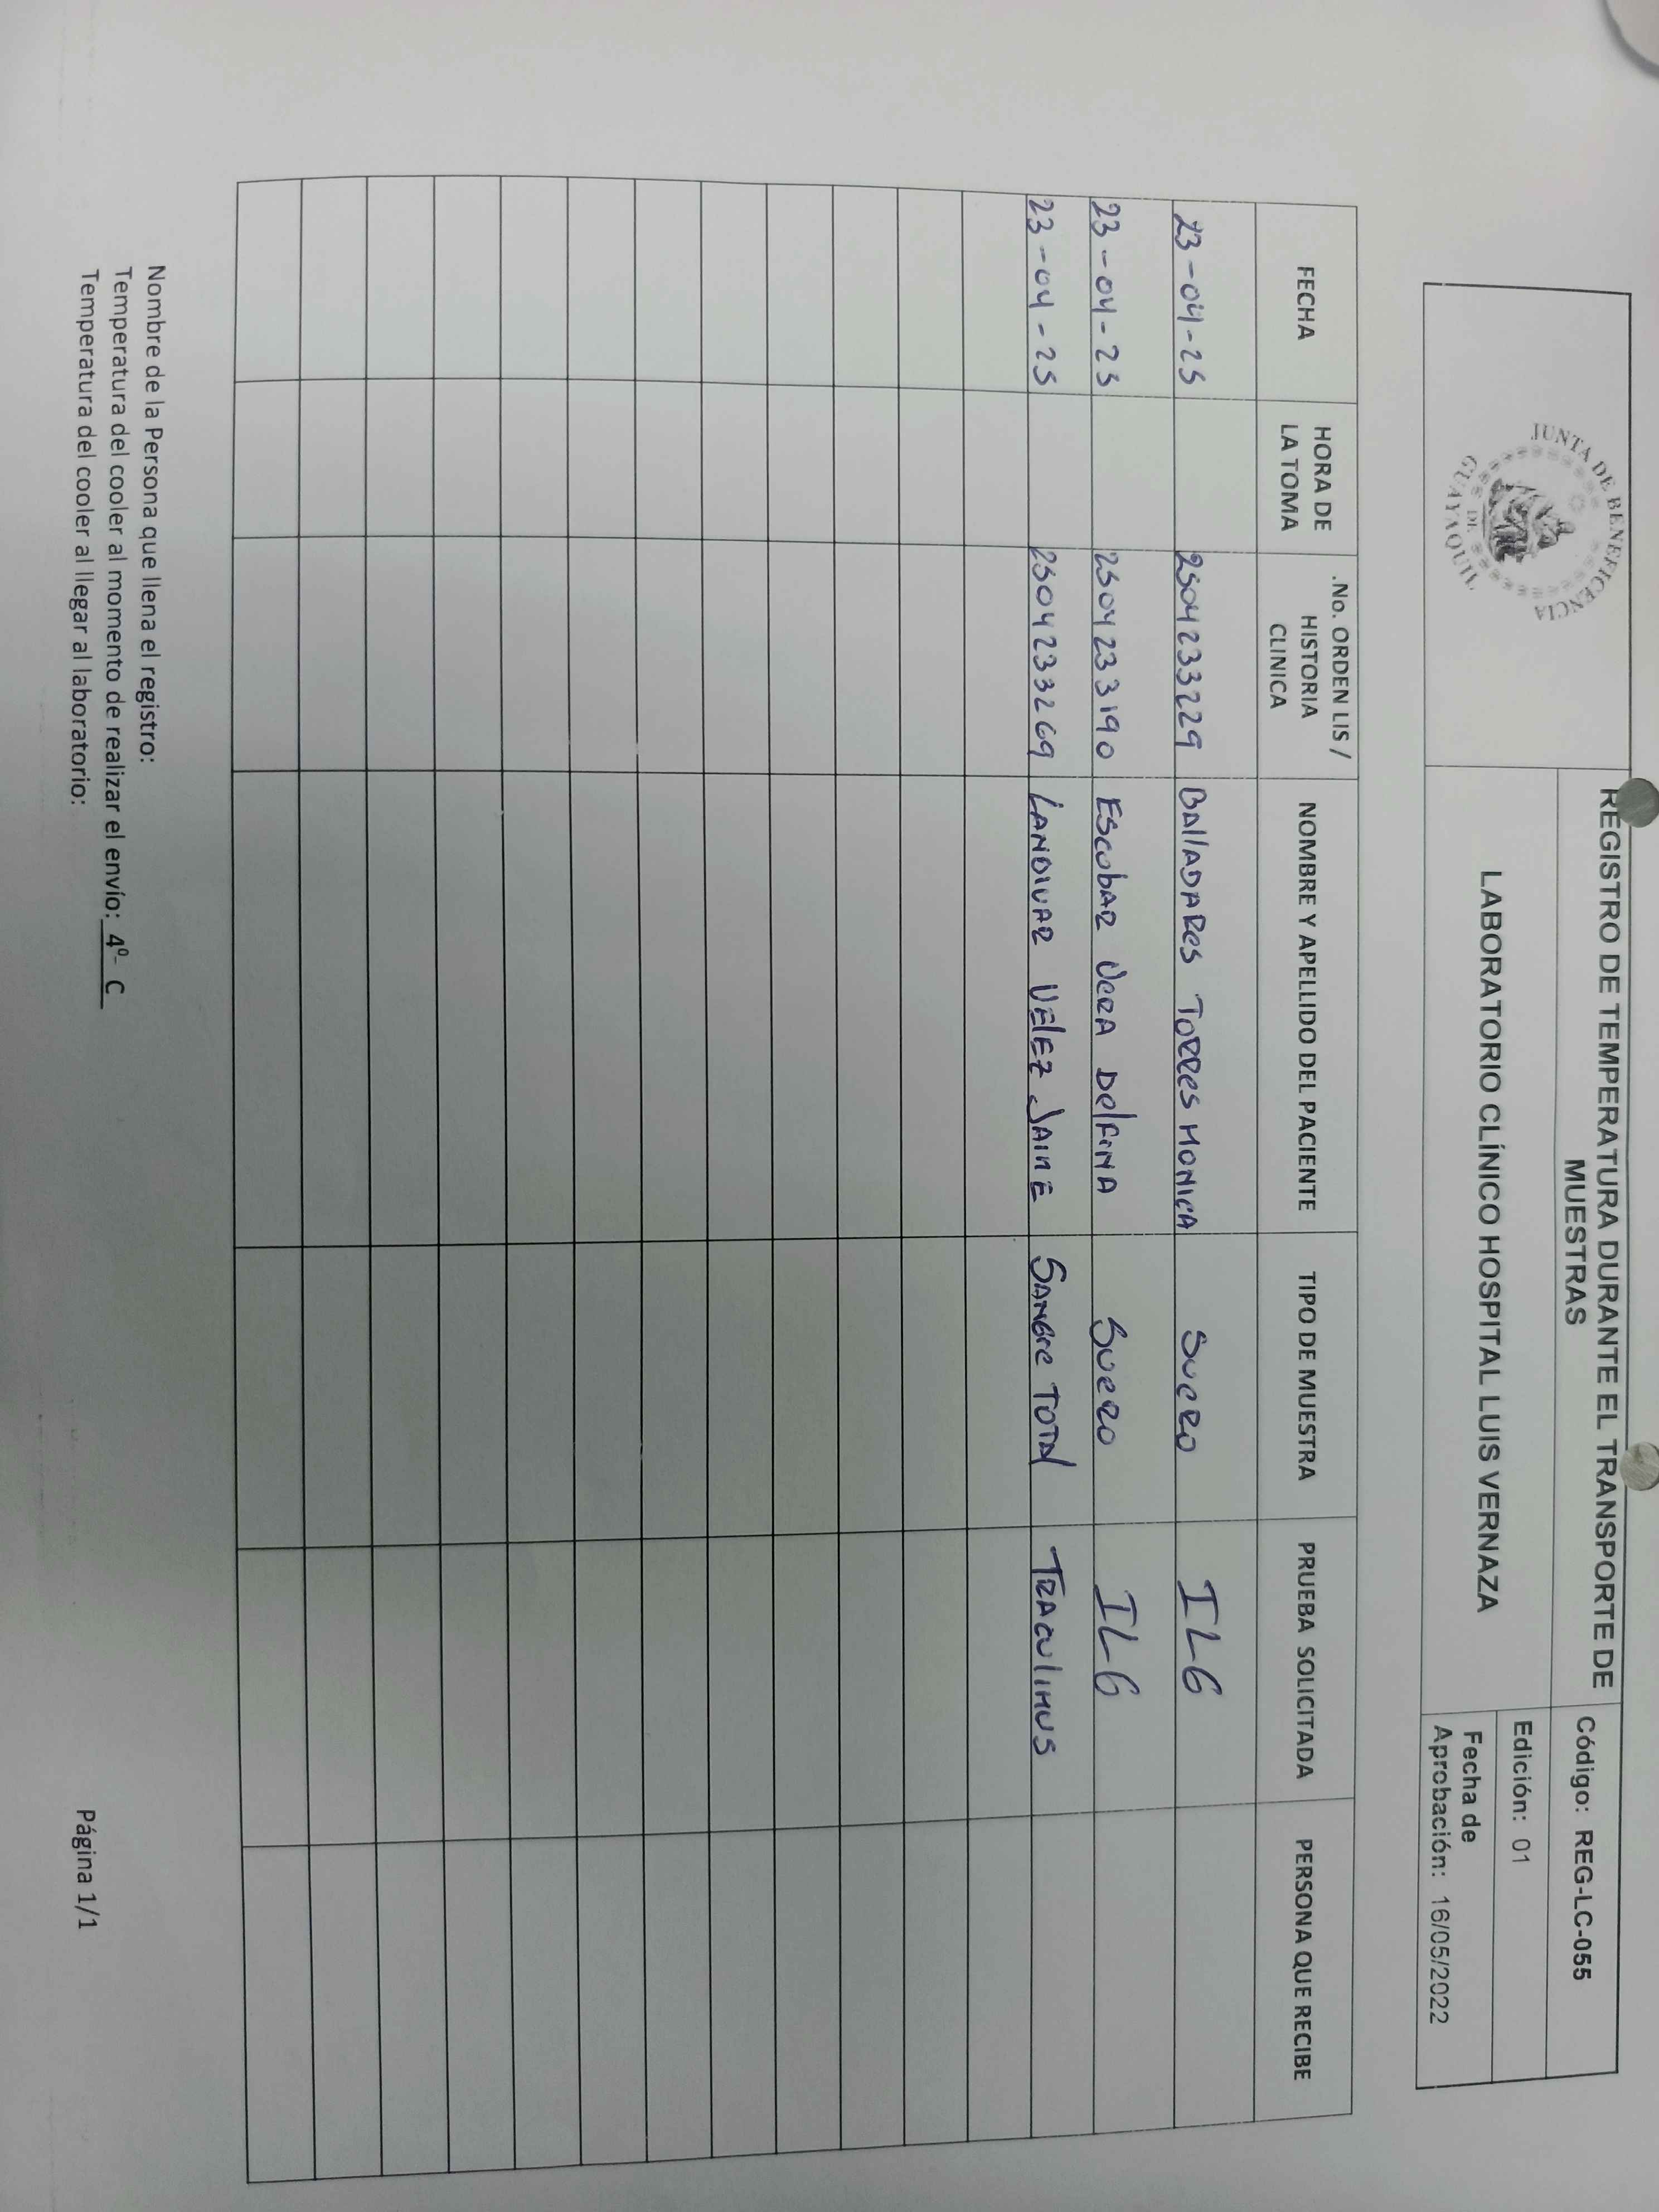 JUNTA DE BENEFICENCIA
DE
GUAYAQUIL
REGISTRO DE TEMPERATURA DURANTE EL TRANSPORTE DE
MUESTRAS
LABORATORIO CLÍNICO HOSPITAL LUIS VERNAZA
Código: REG-LC-055
Edición: 01
Fecha de
Aprobación: 16/05/2022
FECHA HORA DE LA TOMA .No. ORDEN LIS / HISTORIA CLINICA NOMBRE Y APELLIDO DEL PACIENTE TIPO DE MUESTRA PRUEBA SOLICITADA PERSONA QUE RECIBE
23-04-25 2504233229 BAllADARes TORRes MONICA SUeRO IL6
23-04-25 2504233190 EscobAR VeRA DelFINA SUERO IL6
23-04-25 2504233269 LANDIVAR VElEZ JAIME SANGre TOTAl TRACUlIMUS
Nombre de la Persona que llena el registro:
Temperatura del cooler al momento de realizar el envío: 4º C
Temperatura del cooler al llegar al laboratorio:
Página 1/1